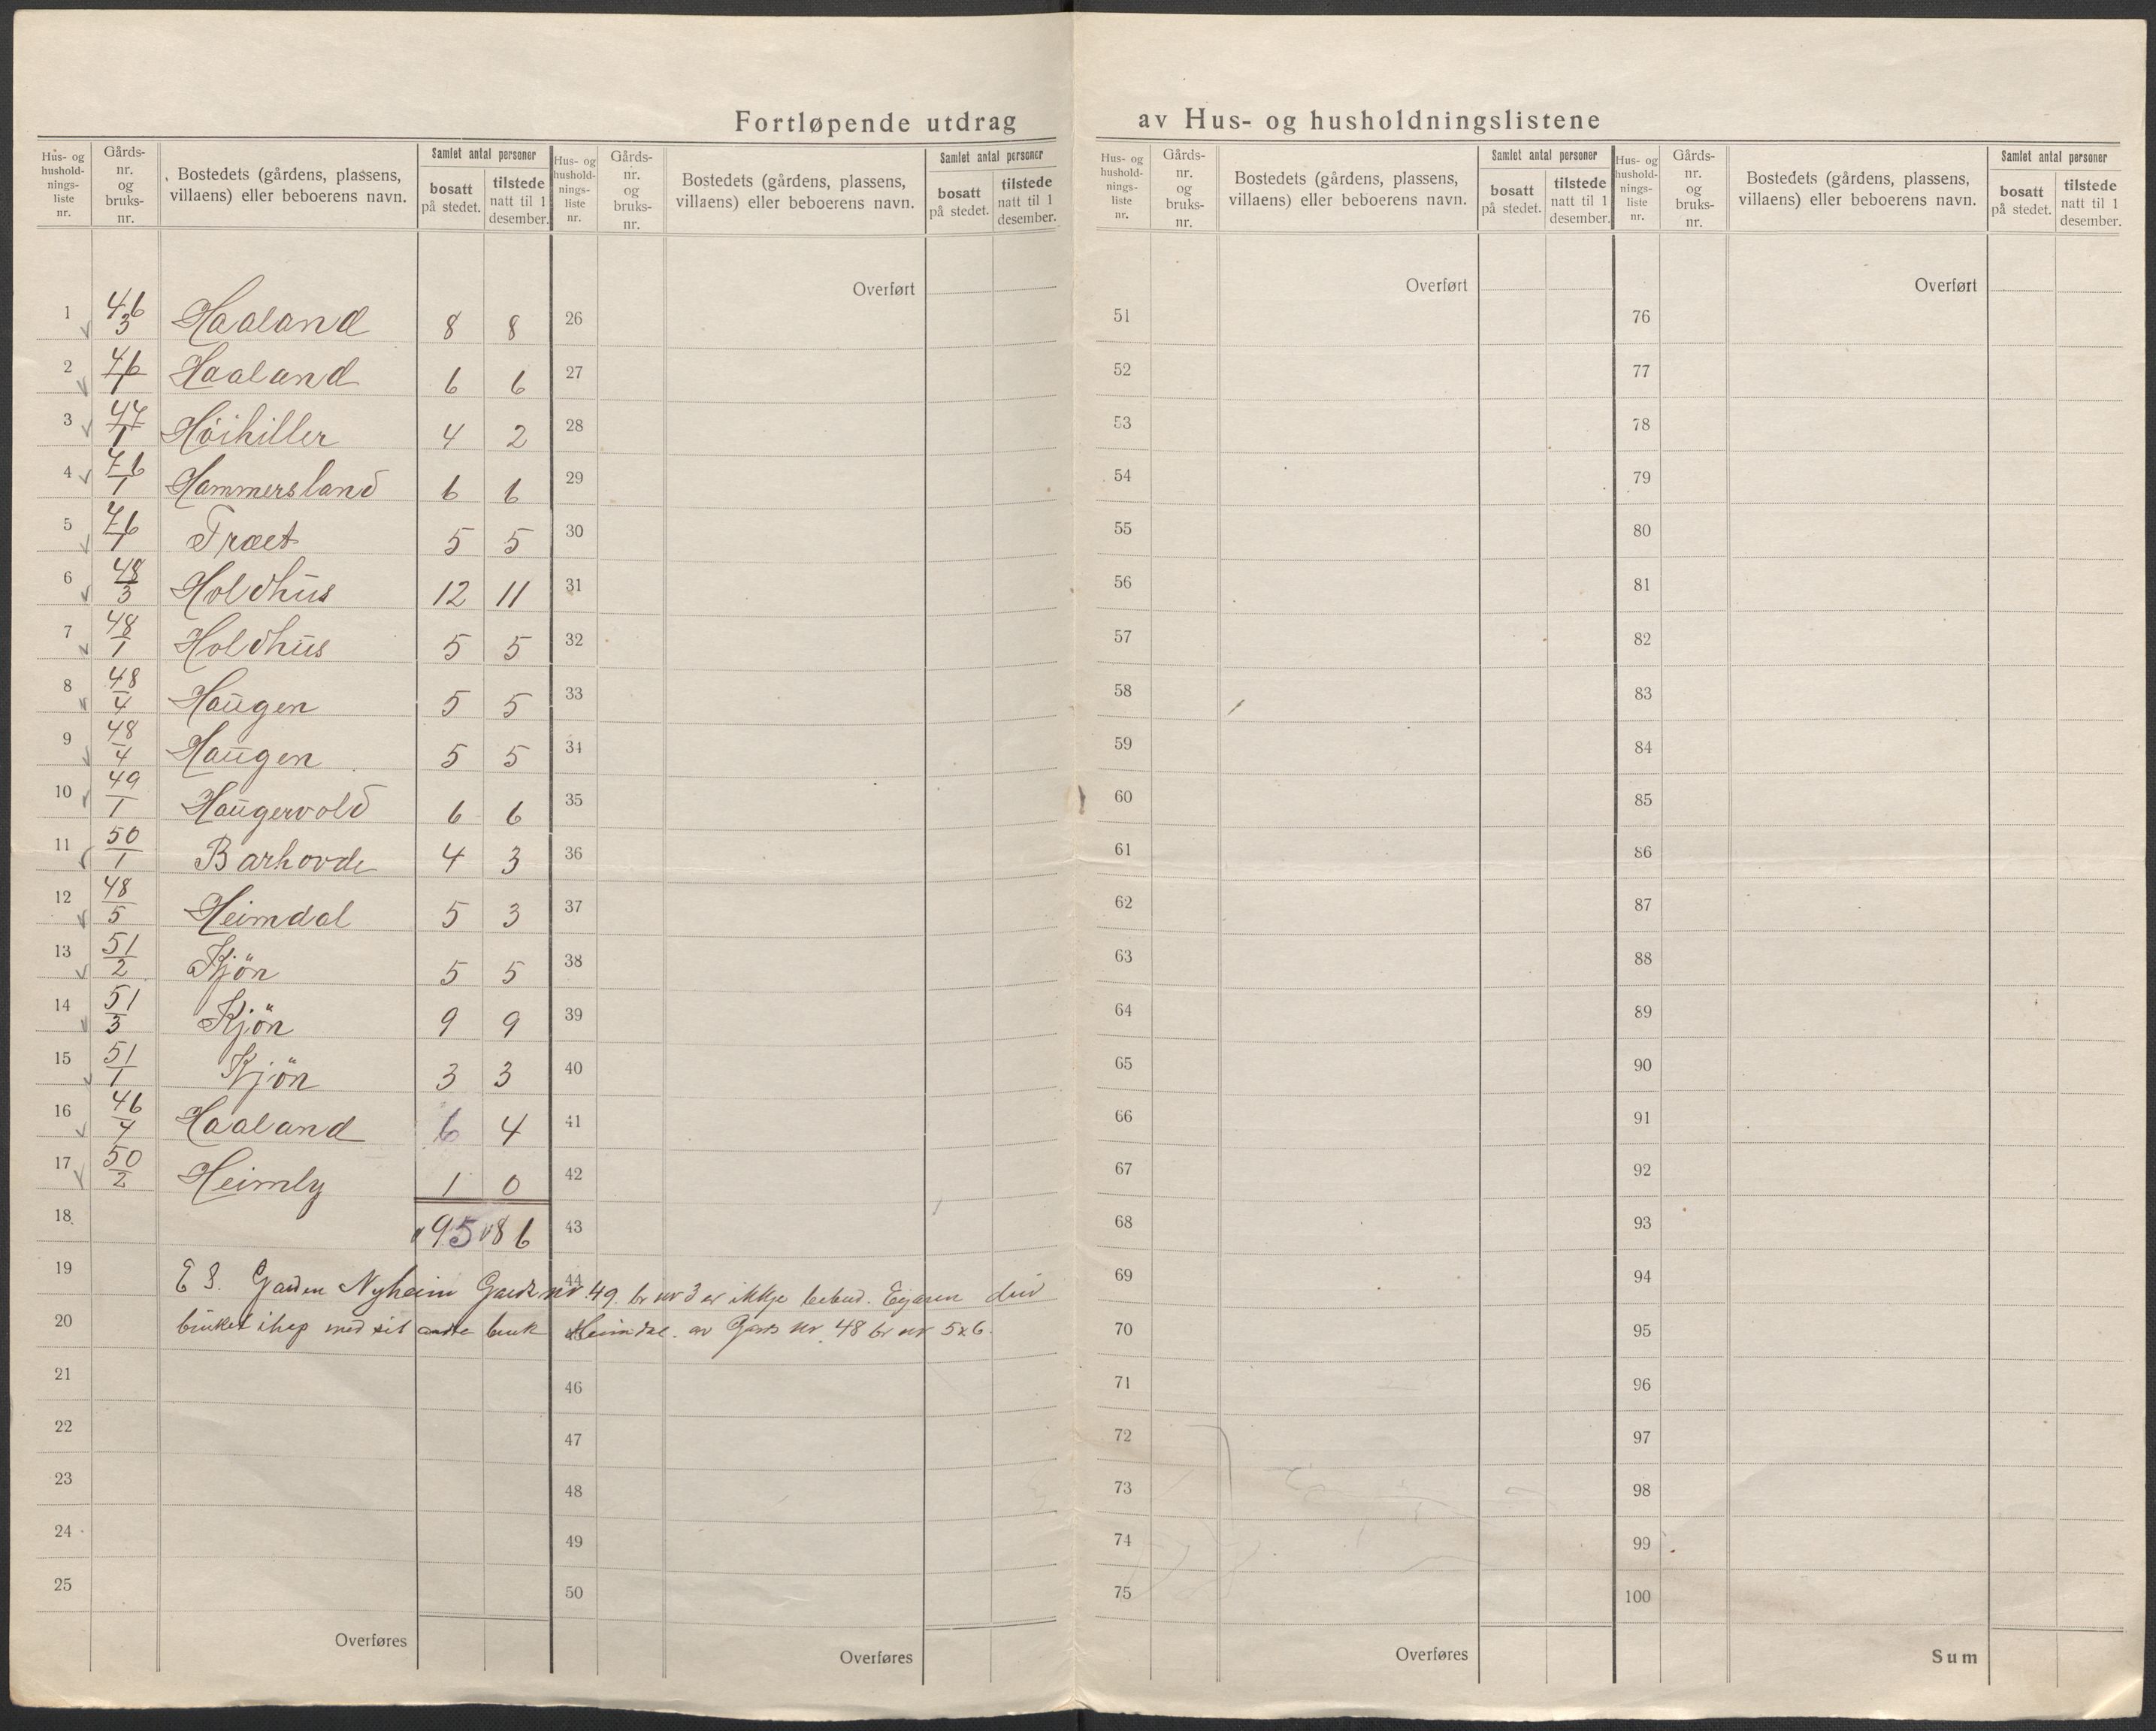 Fortløpende utdrag av Hus- og husholdningslistene
Hus- og husholdnings- liste nr. | Gårds- nr. og bruks- nr. | Bostedets (gårdens, plassens, villaens) eller beboerens navn. | Samlet antal personer | bosatt på stedet. | tilstede natt til 1 desember.
Hus- og hushold- nings- liste nr. | Gårds- nr. og bruks- nr. | Bostedets (gårdens, plassens, villaens) eller beboerens navn. | Samlet antal personer | bosatt på stedet. | tilstede natt til 1 desember.
Hus- og hushold- nings- liste nr. | Gårds- nr. og bruks- nr. | Bostedets (gårdens, plassens, villaens) eller beboerens navn. | Samlet antal personer | bosatt på stedet. | tilstede natt til 1 desember.
Hus- og hushold- nings- liste nr. | Gårds- nr. og bruks- nr. | Bostedets (gårdens, plassens, villaens) eller beboerens navn. | Samlet antal personer | bosatt på stedet. | tilstede natt til 1 desember.
1 46/3 Haaland 8 8
2 46/1 Haaland 6 6
3 47/1 Höihiller 4 2
4 76/1 Hammersland 6 6
5 76/1 Træet 5 5
6 48/3 Holdhus 12 11
7 48/1 Holdhus 5 5
8 48/4 Haugen 5 5
9 48/4 Haugen 5 5
10 49/1 Haugervold 6 6
11 50/1 Barhovde 4 3
12 48/5 Heimdal 5 3
13 51/2 Kjön 5 5
14 51/3 Kjön 9 9
15 51/1 Kjön 3 3
16 46/4 Haaland 6 4
17 50/2 Heimly 1 0
18 95 86
19 E S. Garden Nyheim Gards nr 49 br nr 3 er ikkje bebud. Eigaren driv
20 bruket ihop med sit andre bruk Heimdal. av Gards nr 48 br nr 5 x 6.
21
22
23
24
25
Overføres
Overført
26
27
28
29
30
31
32
33
34
35
36
37
38
39
40
41
42
43
44
46
47
48
49
50
Overføres
Overført
51
52
53
54
55
56
57
58
59
60
61
62
63
64
65
66
67
68
69
70
71
72
73
74
75
Overføres
Overført
76
77
78
79
80
81
82
83
84
85
86
87
88
89
90
91
92
93
94
95
96
97
98
99
100
Sum